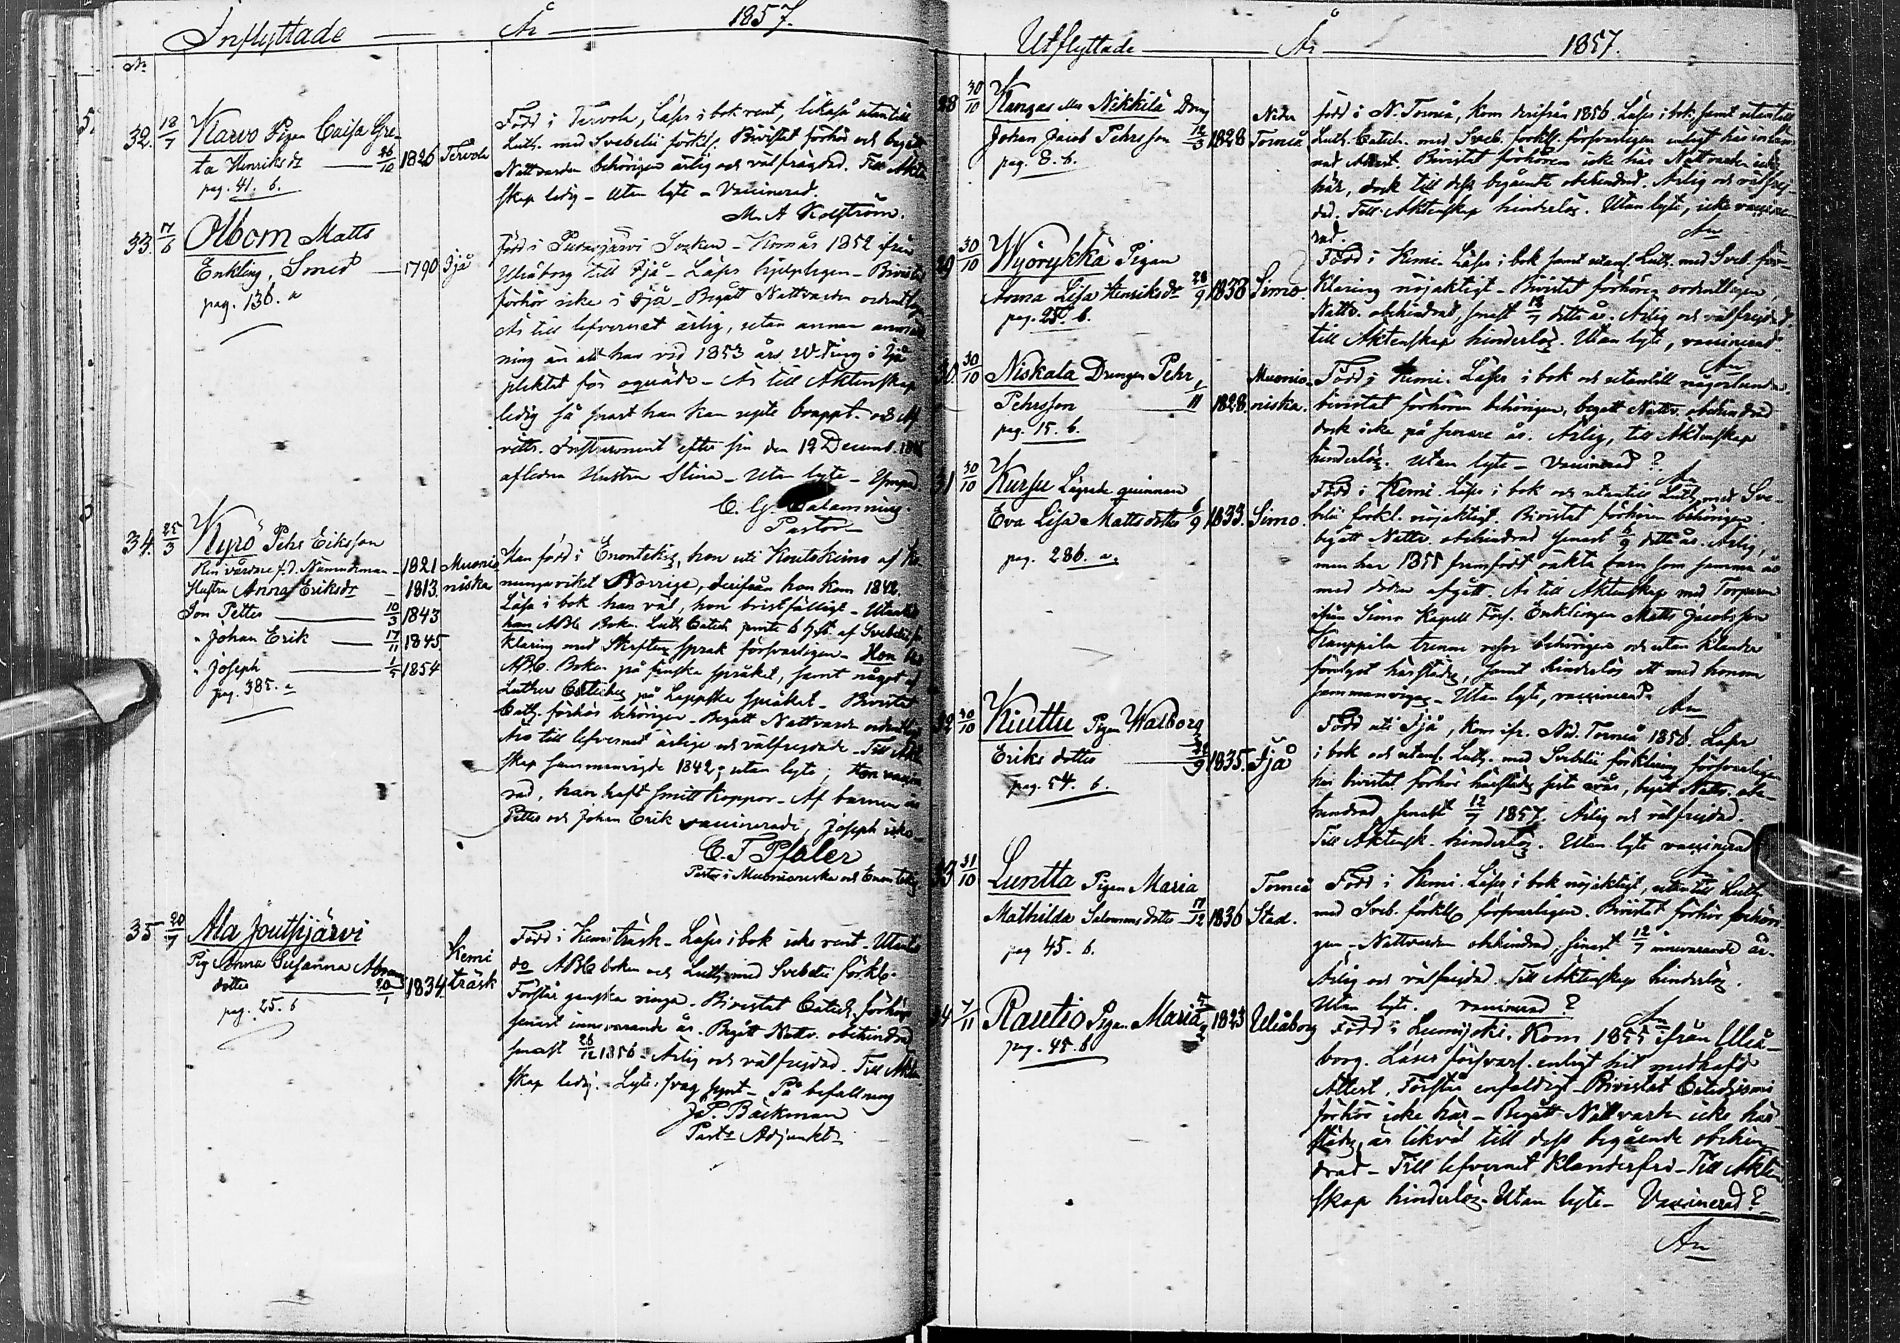 Inflyttade — År — 1857.
No
32. 12/7 Karvo Pigan Caisa Gre-
ta Henriksdr 26/10 1826 Tervola
pag. 41. b.
Född i Tervola, Läser i bok rent, likaså utantill
Luth. med Svebelii förkl. Bivistat förhör och begått
Nattvarden behörigen ärlig och välfrejdad. Till Äkten-
skap ledig – Utan lyte – Vaccinerad.
M. A. Kolström.
33. 17/6 Olbom Matts
Enkling, Smed — 1790 Ijå
pag. 136. a
född i Pudasjärvi Socken – Kom år 1852 ifrån
Uleåborg till Ijå – Läser hjelpligen – Bivistat
förhör icke i Ijå – Begått Nattvarden ordentligen
Är till lefvernet ärlig, utan annan anmärk
ning än att han vid 1853 års W. Ting i Ijå
pliktat för oqväde – Är till Äktenskap
ledig så snart han kan
rätts Instrument efter sin den 12 Decemb.
aflidna Hustru Stina – Utan lyte – Ympad
C. G. Calamnius.
Pastor
34. 25/3 Kyrö Pehr Eriksson
f.d. Nämndeman — 1821 Muonio
Hustru Anna Eriksdr — 1813. niska
Son Petter 10/3 1843
" Johan Erik — 17/11 1845
" Joseph — 1/5 1854
pag. 385. a
Han född i Enontekis, hon uti Koutokeino af Ko-
nungariket Norrige, derifrån hon kom 1842.
Läsa i bok han väl, hon bristfälligt – Utantill
han ABC Boken Luth. Catech. af Svebelii för
klaring med Skriftens språk försvarligen – Hon
ABC. Boken på finska språket, samt något af
Luthers Catekes på Lappska språket – Bivistat
Catk. förhör behörigen – Begått Nattvarden ordentligt
Äro till lefvernet ärlige och välfrejdade – Till Äkten
skap sammanvigde 1842; utan lyte; Hon vaccine
rad, han haft Smittkoppor – Af barnen är
Petter och Johan Erik vaccinerade, Joseph icke
C. F. Pfaler
Pastor i Muonioniska och Enontekis
35 20/7 Ala Joutsijärvi
Pig. Anna Susanna Abrams
dotter 20/1 1834 Kemi
träsk
pag. 25. b
Född i Kemiträsk – Läser i bok icke rent – Utantill
do ABC boken och Luth. med Svebelii förkla-
Förstår ganska ringa. Bivistat Catech. förhör
senast innevarande år. Begått Nattv. obehindrad
senast 26/12 1856. Ärlig och välfrejdad. Till Äkten
skap ledig. Lyte: svag synt – På befallning
J. P. Bäckman
Past. Adjunkt
Utflyttade — År — 1857.
28 30/10 Kangas eller Nikkilä Dreng
Johan Jacob Pehrsson 12/3 1828 Neder
Torneå
pag. 8. b.
född i N. Torneå, kom derifrån 1856. Läser i bok samt utantill
Luth. Catech. med Sveb. förkl. försvarligen enligt här inläm
nad Attest. Bivistat förhören icke här Nattvarden icke
här, dock till dess begående obehindrad. Ärlig och välfrej-
dad. Till Äktenskap hinderlös. Utan lyte, icke vaccine
rad.
29 30/10 Wyörykkä Pigan
Anna Lisa Henriksdr 28/9 1838 Simo.
pag. 25. b.
Född i Kemi. Läser i bok samt utant. Luth. med Sveb. för-
klaring nöjaktigt – Bivistat förhören ordentligen
Nattv. obehindrad, senast 12/7 detta år. Ärlig och välfrejdad.
till Äktenskap hinderlös. Utan lyte, vaccinerad.
30. 30/10 Niskala Drengen Pehr
Pehrsson 1/11 1828. Muonio-
niska.
pag. 15. b.
Född i Kemi. Läser i bok och utantill någorlunda.
bivistat förhören behörigen, begått Nattv. obehindrad
dock icke på senare år. Ärlig, till Äktenskap
hinderlös. Utan lyte – Vaccinerad?
31 30/10 Kursu Lägrade qvinnan
Eva Lisa Matts dotter 6/9 1833. Simo.
pag. 286. a.
Född i Kemi. Läser i bok och utantill Luth. med Sve-
belii förkl. nöjaktigt. Bivistat förhören behörigen.
begått Nattv. obehindrad senast 6/9 detta år. Ärlig,
men har 1855 framfödt oäkta barn som samma år
med döden afgått. Är till Äktenskap med Torparen
ifrån Simo Kapell Förs. Enklingen Matts Jacobsson
Kauppila trenne resor behörigen och utan klander
förelyst härstädes, samt hinderlös att med honom
sammanvigas – Utan lyte, vaccinerad.
32 30/10 Kiuttu Pigan Walborg
Eriks dotter 1835. Ijå
pag. 54. b.
Född uti Ijå, kom ifr. Ned. Torneå 1856. Läser
i bok och utant. Luth. med Svebelii förklaring försvarligen
har bivistat förhör härstädes sista år, begått Nattv. obe-
hindrad senast 12/7 1857. Ärlig och välfrejdad.
Till Äktensk. hinderlös. Utan lyte vaccinerad
33 31/10 Luntta Pigan Maria
Mathilda Salomons dotter 17/12 1836 Torneå
Stad.
pag 45. b.
Född i Kemi. Läser i bok nöjaktigt, utantill Luth.
med Sveb. förkl. försvarligen. Bivistat förhör behöri-
gen – Nattvarden obehindrad, senast 12/7 innevarande år.
Ärlig och välfrejdad. Till Äktenskap hinderlös.
Utan lyte. vaccinerad?
34 7/11 Rautio Pigan Maria 1823 Uleåborg
pag. 45. b
Född i Lumijoki. Kom 1855 ifrån Uleå-
borg. Läser försvarl. enligt hit medhafd
Attest. Förstår enfaldigt – Bivistat Catechismi
förhör icke här – Begått Nattvarden icke här
städes, är likväl till dess begående obehin
drad – Till lefvernet klanderfri – Till Äkten
skap hinderlös – Utan lyte – Vaccinerad?